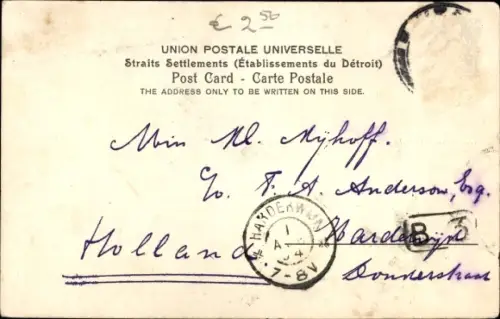 € 2.50
UNION POSTALE UNIVERSELLE
Straits Settlements (Établissements du Détroit)
Post Card - Carte Postale
THE ADDRESS ONLY TO BE WRITTEN ON THIS SIDE.
Min Hl. Nyhoff.
c/o. F. A. Anderson, Esq.
HARDERWIJK
1
04
7-8V
Harderwijk
B
Holland
Donderstraat